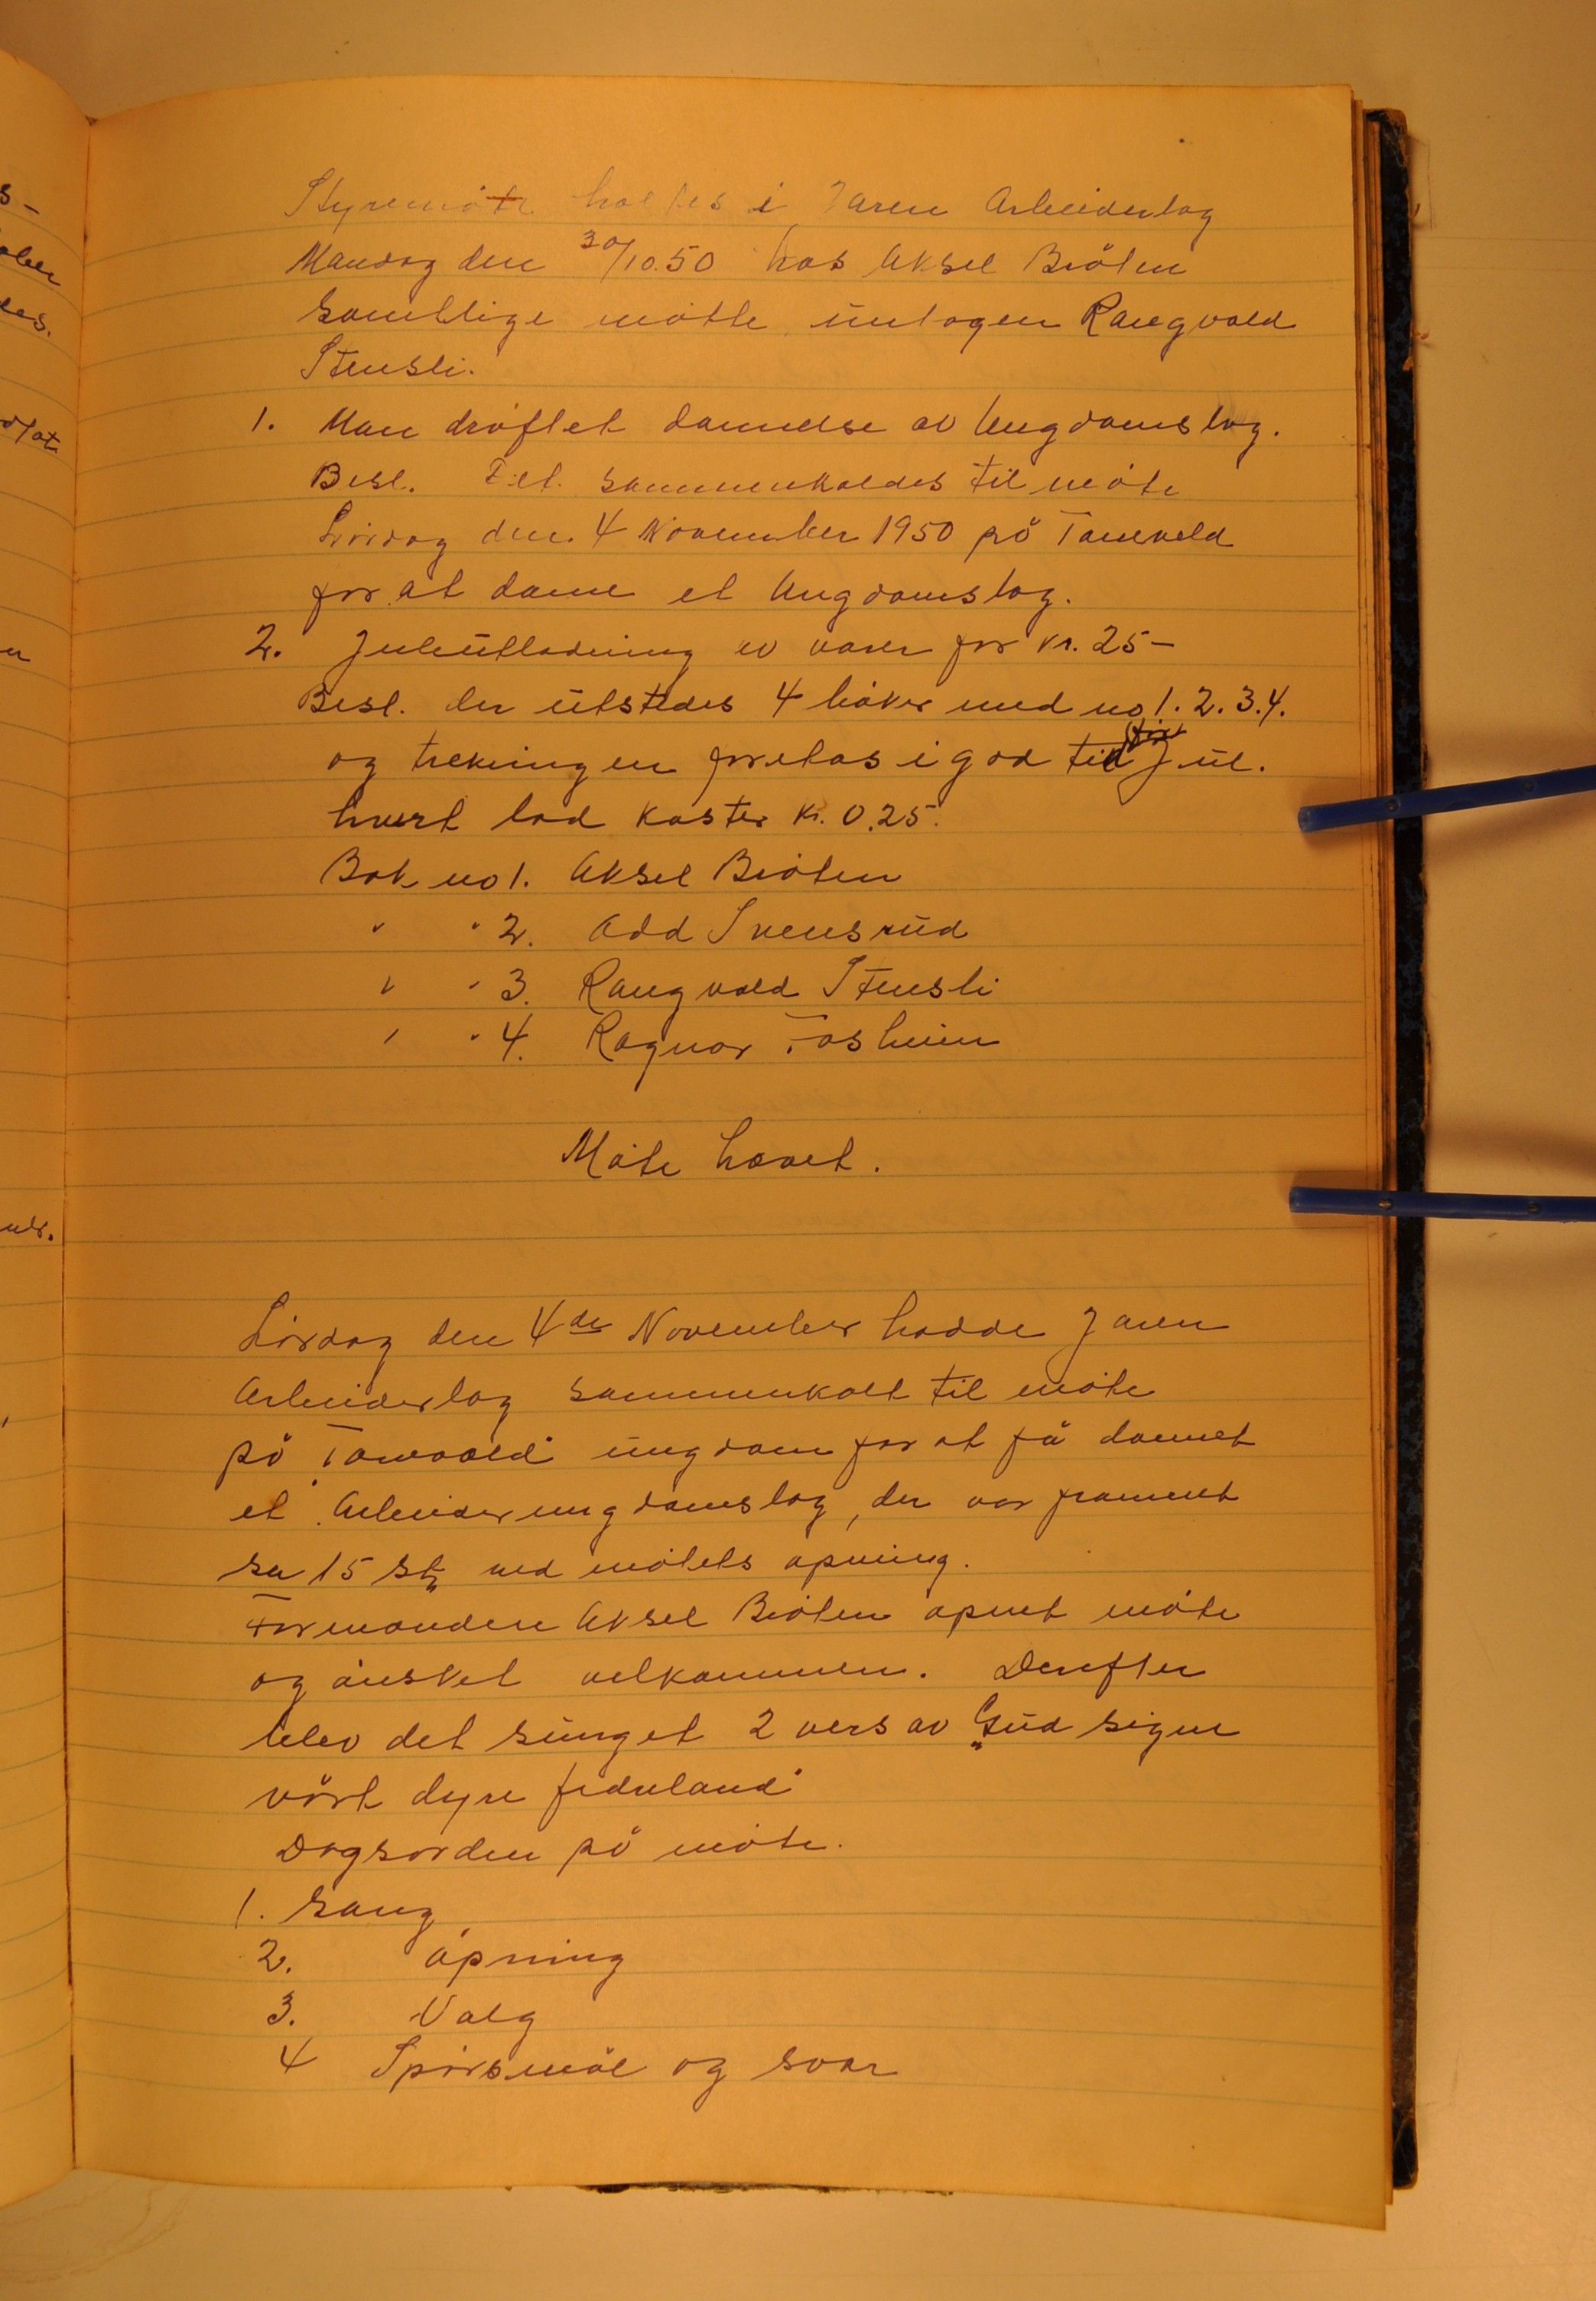 Styremøte holtes i Jaren Arbeiderlag
Mandag den 30/10.50 hos Aksel Bråten
samtlige møtte untagen Rangvald
Stensli.
1. Man drøftet dannelse av Ungdomslag.
Besl. Det sammenkoldes til møte
Lørdag den. 4 November 1950 på Tamvold
for at danne et Ungdomslag.
2. Juleutlodning av varer for kr. 25-
Besl. der utstedes 4 bøker med no 1. 2. 3. 4.
og trekningen foretas i god tid før Jul.
hvert lod koster kr. 0.25.
Bok no 1. Aksel Bråten
" " 2. Odd Svensrud
" " 3. Rangvald Stensli
" " 4. Ragnar Fosheim
Møte hævet.
Lørdag den 4de November hadde Jaren
Arbeiderlag sammenkalt til møte
på Tamvold ungdom for at få dannet
et Arbeiderungdomslag, der var frammet
sa 15 stk ved møtets åpning.
Formanden Aksel Bråten åpnet møte
og ønsket velkommen. Derefter
blev det sunget 2 vers av "Gud signe
vårt dyre fedreland"
Dagsorden på møte.
1. Sang
2. åpning
3. Valg
4 Spørsmål og svar